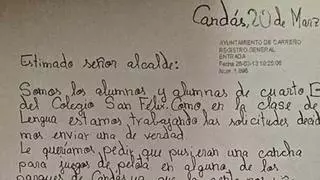 Candás, 20 de Marz
AYUNTAMIENTO DE CARREÑO
REGISTRO GENERAL
ENTRADA
Fecha 26-03-13 10:25:06
Num. 1.896
Estimado señor alcalde:
Somos los alumnos y alumnas de cuarto
del Colegio San Félix. Como, en la clase de
Lengua estamos trabajando las solicitudes
mos enviar una de verdad.
Le queríamos pedir que pusieran una cancha
para juegos de pelota en alguno de los
parques de Candás